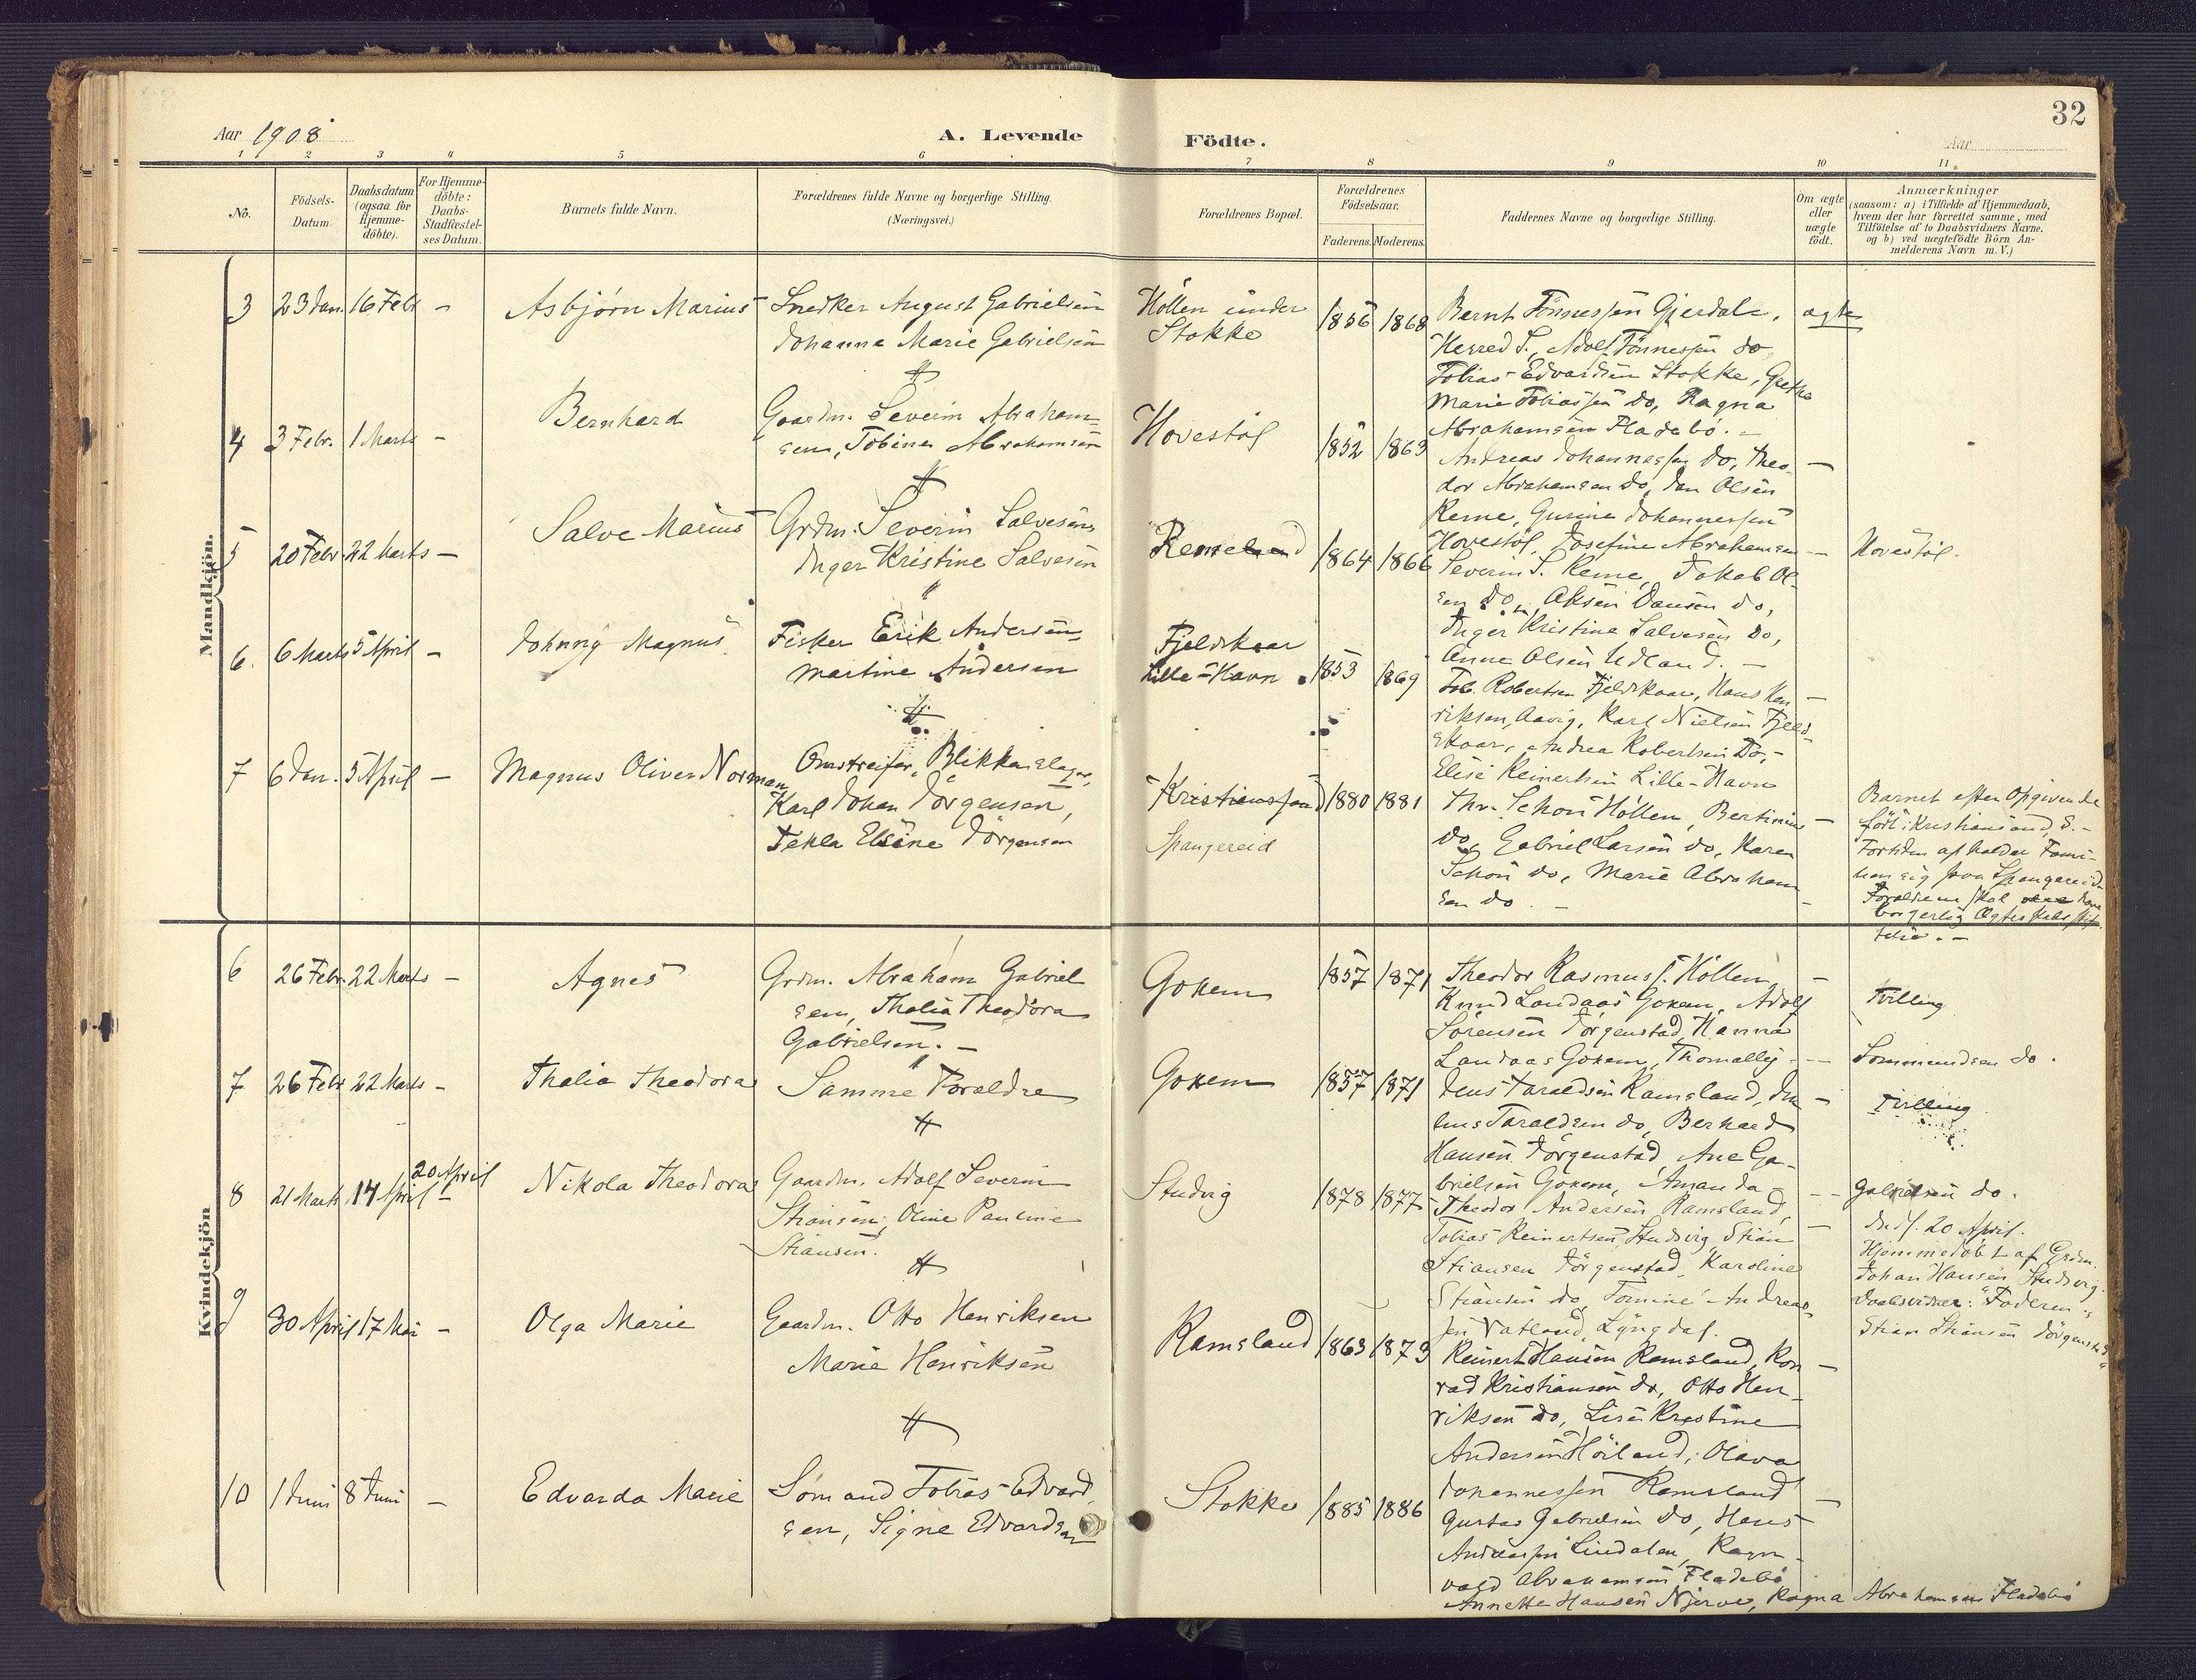 32
Aar 1908
A. Levende Födte.
Aar
1 2 3 4 5 6 7 8 9 10 11
No.
Födsels-
Datum.
Daabsdatum
(ogsaa for
Hjemme-
döbte).
For Hjemme-
döbte:
Daabs-
Stadfæstel-
ses Datum.
Barnets fulde Navn.
Forældrenes fulde Navne og borgerlige Stilling.
(Næringsvei.)
Forældrenes Bopæl.
Forældrenes
Födselsaar.
Faderens. Moderens.
Faddernes Navne og borgerlige Stilling.
Om ægte
eller
uægte
födt.
Anmærkninger
(saasom: a) i Tilfælde af Hjemmedaab,
hvem der har forrettet samme, med
Tilföielse af to Daabsvidners Navne.
og b) ved uægtefödte Börn An-
melderens Navn m. V.)
Mandkjön.
3 23 Jan. 16 Febr - Asbjörn Marius
Snedker August Gabrielsen
Johanna Marie Gabrielsen
Höllen under
Stokke
1856 1868
Bernt Tönnessen Gjerdale,
Herred S., Adolf Tönnessen do,
Tobias Edvardsen Stokke, Grethe
Marie Tobiassen do, Ragna
Abrahamsen Fladebö. -
ægte
4 3 Febr. 1 Marts - Bernhard
Gaardm. Severin Abraham-
sen, Tobine Abrahamsen
Hovestöl
1852 1863
Andreas Johannessen do, Theo-
dor Abrahamsen do, Jan Olsen
Reme, Gurine Johannessen
Hovestöl, Josefine Abrahamsen
-
Hovestöl.
5 20 Febr 22 Marts - Salve Marius
Grdm. Severin Salvesen,
Inger Kristine Salvesen
1864 1866
Severin S. Reme, Jakob Ol-
sen do, Aksen Jansen do,
Inger Kristine Salvesen do,
Anne Olsen Udland. -
6. 6 Marts 5 April - Johnny Magnus
Fisker Erik Andersen,
Martine Andersen
Fjeldskaar
Lille-Havn
1853 1869
Tob. Robertsen Fjeldskaar, Hans Hen-
riksen, Aavig, Karl Nielsen Fjeld-
skaar, Andrea Robertsen Do, -
Elise Reinertsen Lille-Havn
-
7 6 Jan. 5 April - Magnus Oliver Norman
Omstreifer, Blikkenslager,
Karl Johan Jörgensen,
Tekla Elsine Jörgensen
Kristianssand
Spangereid
1880 1881
Thv. Schou Höllen, Bertinius
do, Gabriel Larsen do, Karen
Schou do, Marie Abraham-
sen do. -
-
Barnet efter Opgivende
född i Kristiansand, S. -
Fortiden opholder Fami-
lien sig paa Spangereid
Forældrene skal have
borgerlig Ægteskabsstif-
telse. -
Kvindekjön
6 26 Febr. 22 Marts - Agnes
Grdm. Abraham Gabriel-
sen, Thalia Theodora
Gabrielsen. -
Gokem
1857 1871
Theodor Rasmuss. Höllen,
Knud Landaas Gokem, Adolf
Sörensen Jörgenstad, Hanna
Landaas Gokem, Thomally
-
Tvilling
Sommundsen do.
7 26 Febr 22 Marts - Thalia Theodora
Samme Foreldre
Gokem
1857 1871
Jens Taraldsen Ramsland,
Taraldsen do, Berhard
Hansen Jörgenstad, Ane Ga-
brielsen Gokem, Amanda
-
Tvilling
Gabrielsen do.
8 21 Marts 14 April 20 April - Nikola Theodora
Gaardm. Adolf Severin
Stiansen, Oline Pauline
Stiansen.
Studvig
1878 1877
Theodor Andersen Ramsland,
Tobias Reinertsen Studvig, Stian
Stiansen Jörgenstad, Karoline
Stiansen do, Tomine Andreas-
sen Vatland, Lyngdal.
-
Ind. 20 April.
Hjemmedöbt af Grdm.
Johan Hansen Studvig.
Daabsvidner: Faderen og
Stian Stiansen Jörgenstad
9 30 April 17 Mai - Olga Marie
Gaardm. Otto Henriksen
Marie Henriksen
Ramsland
1863 1873
Reinert Hansen Ramsland, Kon-
rad Kristiansen do, Otto Hen-
riksen do, Lise Kristine
Andersen Höiland, Olava
Johannessen Ramsland
-
10 1 Juni 8 Juni - Edvarda Marie
Sömand Tobias Edvard-
sen, Signe Edvardsen
Stokke
1885 1886
Gustav Gabrielsen do, Hans
Andreassen Lindalen, Ragn-
vald Abrahamsen Fladebö
Annette Hansen Njerve, Ragna Abrahamsen Fladebö
-